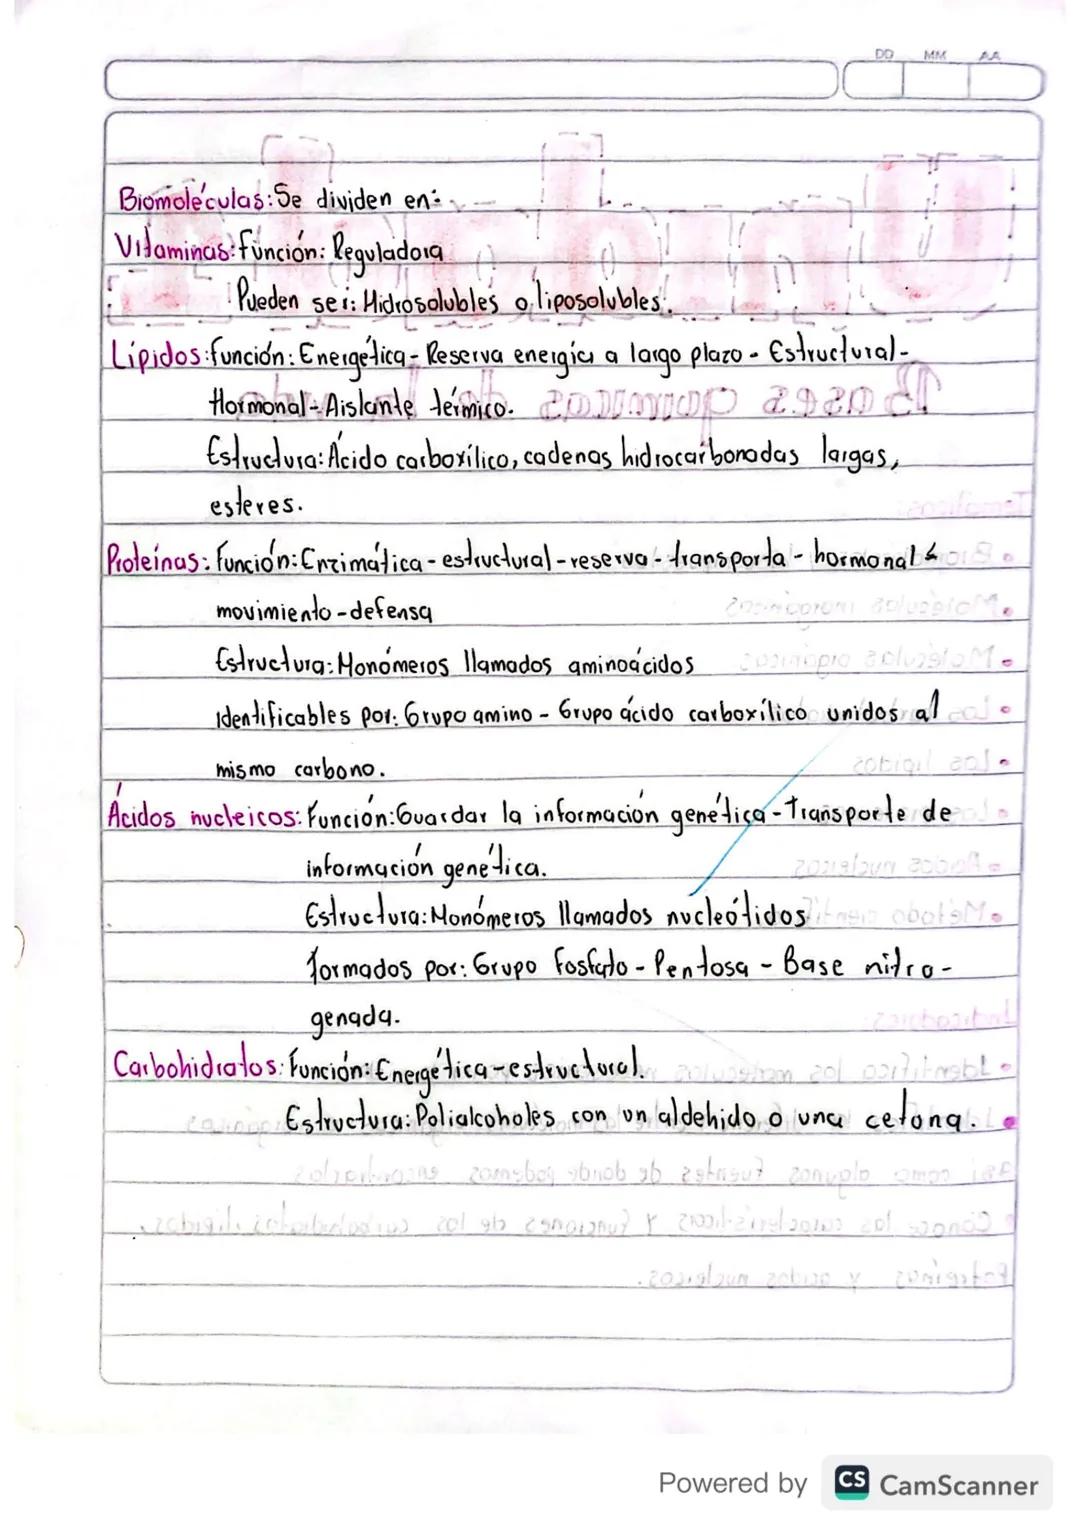 DD MM AA
Biomoléculas: Se dividen en:
Vitaminas: función: Reguladora
Pueden ser: Hidrosolubles o liposolubles.
Lípidos: función: Energética - Reserva energía a largo plazo - Estructural -
Hormonal - Aislante térmico.
Estructura: Ácido carboxílico, cadenas hidrocarbonadas largas,
esteres.
Proteínas: Función: Enzimática - estructural - reserva - transporta - hormonal
movimiento - defensa
Estructura: Monómeros llamados aminoácidos
identificables por: Grupo amino - Grupo ácido carboxílico unidos al
mismo carbono.
Ácidos nucleicos: Función: Guardar la información genética - Transporte de
información genética.
Estructura: Monómeros llamados nucleótidos
formados por: Grupo fosfato - Pentosa - Base nitro-
genada.
Carbohidratos: Función: Energética - estructural.
Estructura: Polialcoholes con un aldehido o una cetona.
Powered by CS CamScanner